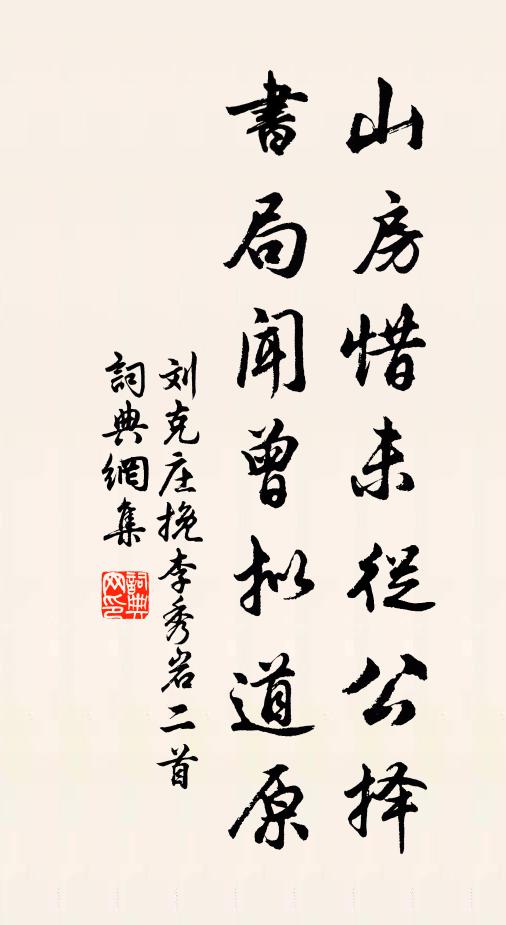 山房惜未從公择
書局聞曾拟道原
刘克庄挽李秀岩二首
詞典網集
詞典网印